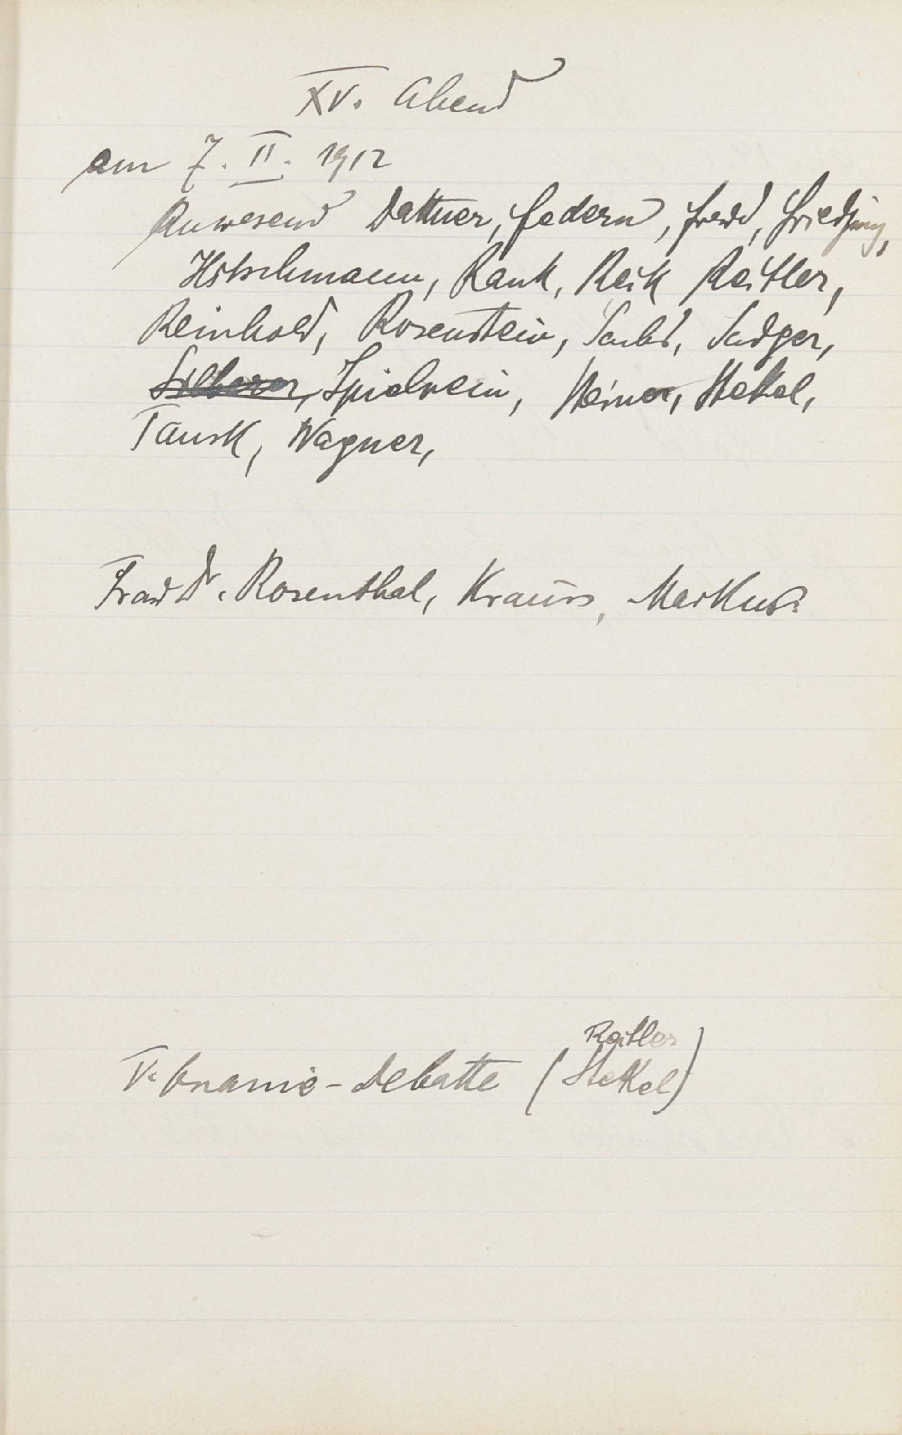 XV. Abend
am 7. II. 1912
Anwesend Dattner, Federn, Freud, Friedjung,
Hitschmann, Rank, Reik Reitler,
Reinhold, Rosenstein, Sachs, Sadger,
Silberer, Spielrein, Steiner, Stekel,
Tausk, Wagner,
Frau Dr. Rosenthal, Krauss, Markus
V. Onanie-Debatte (Reitler
Stekel)